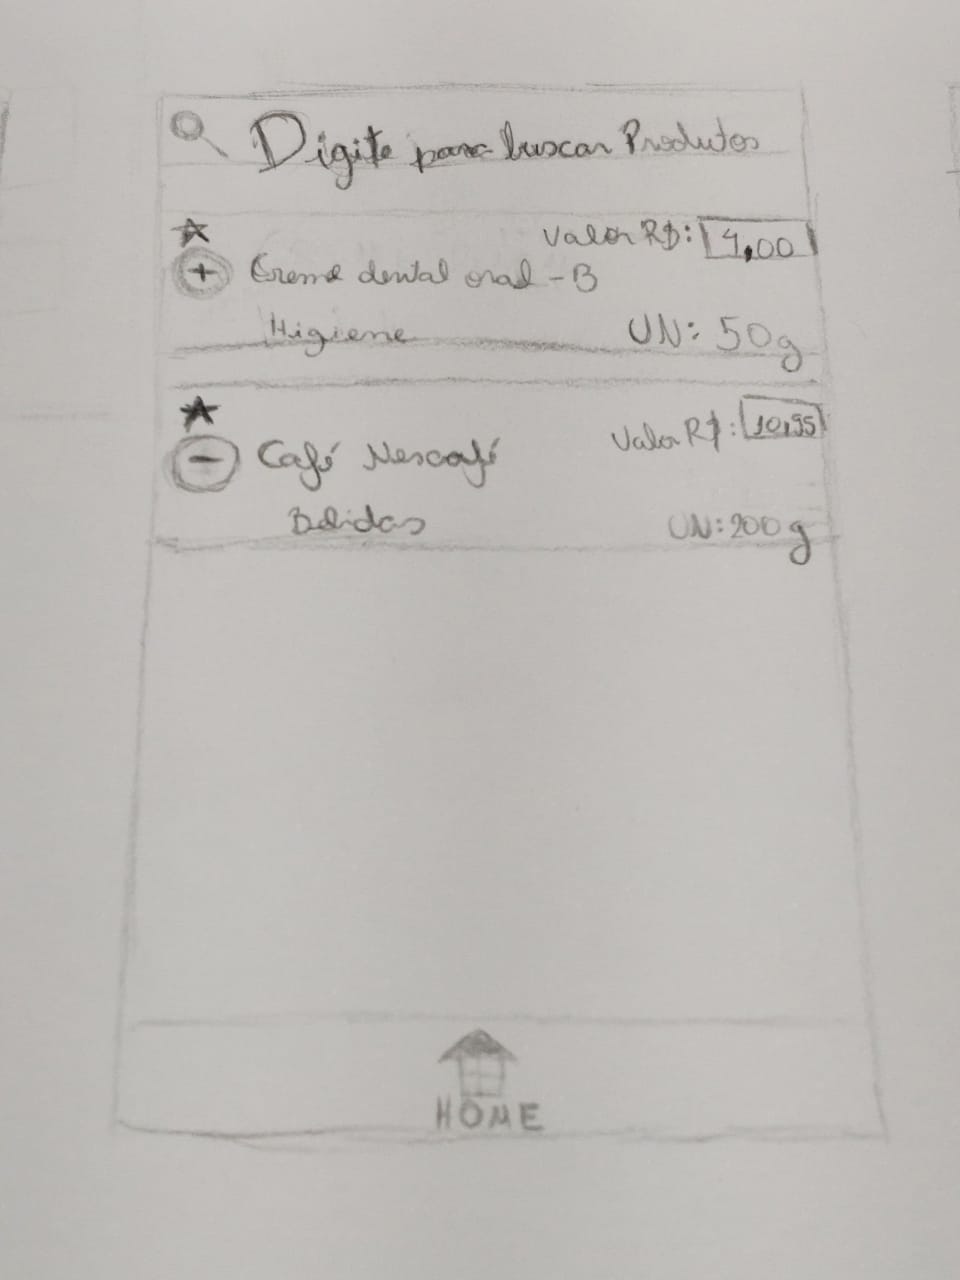 Digite para buscar Produtos
Valor R$: 4,00
Creme dental oral-B
Higiene UN: 50g
Valor R$: 10,95
Café Nescafé
Bebidas UN: 200g
HOME